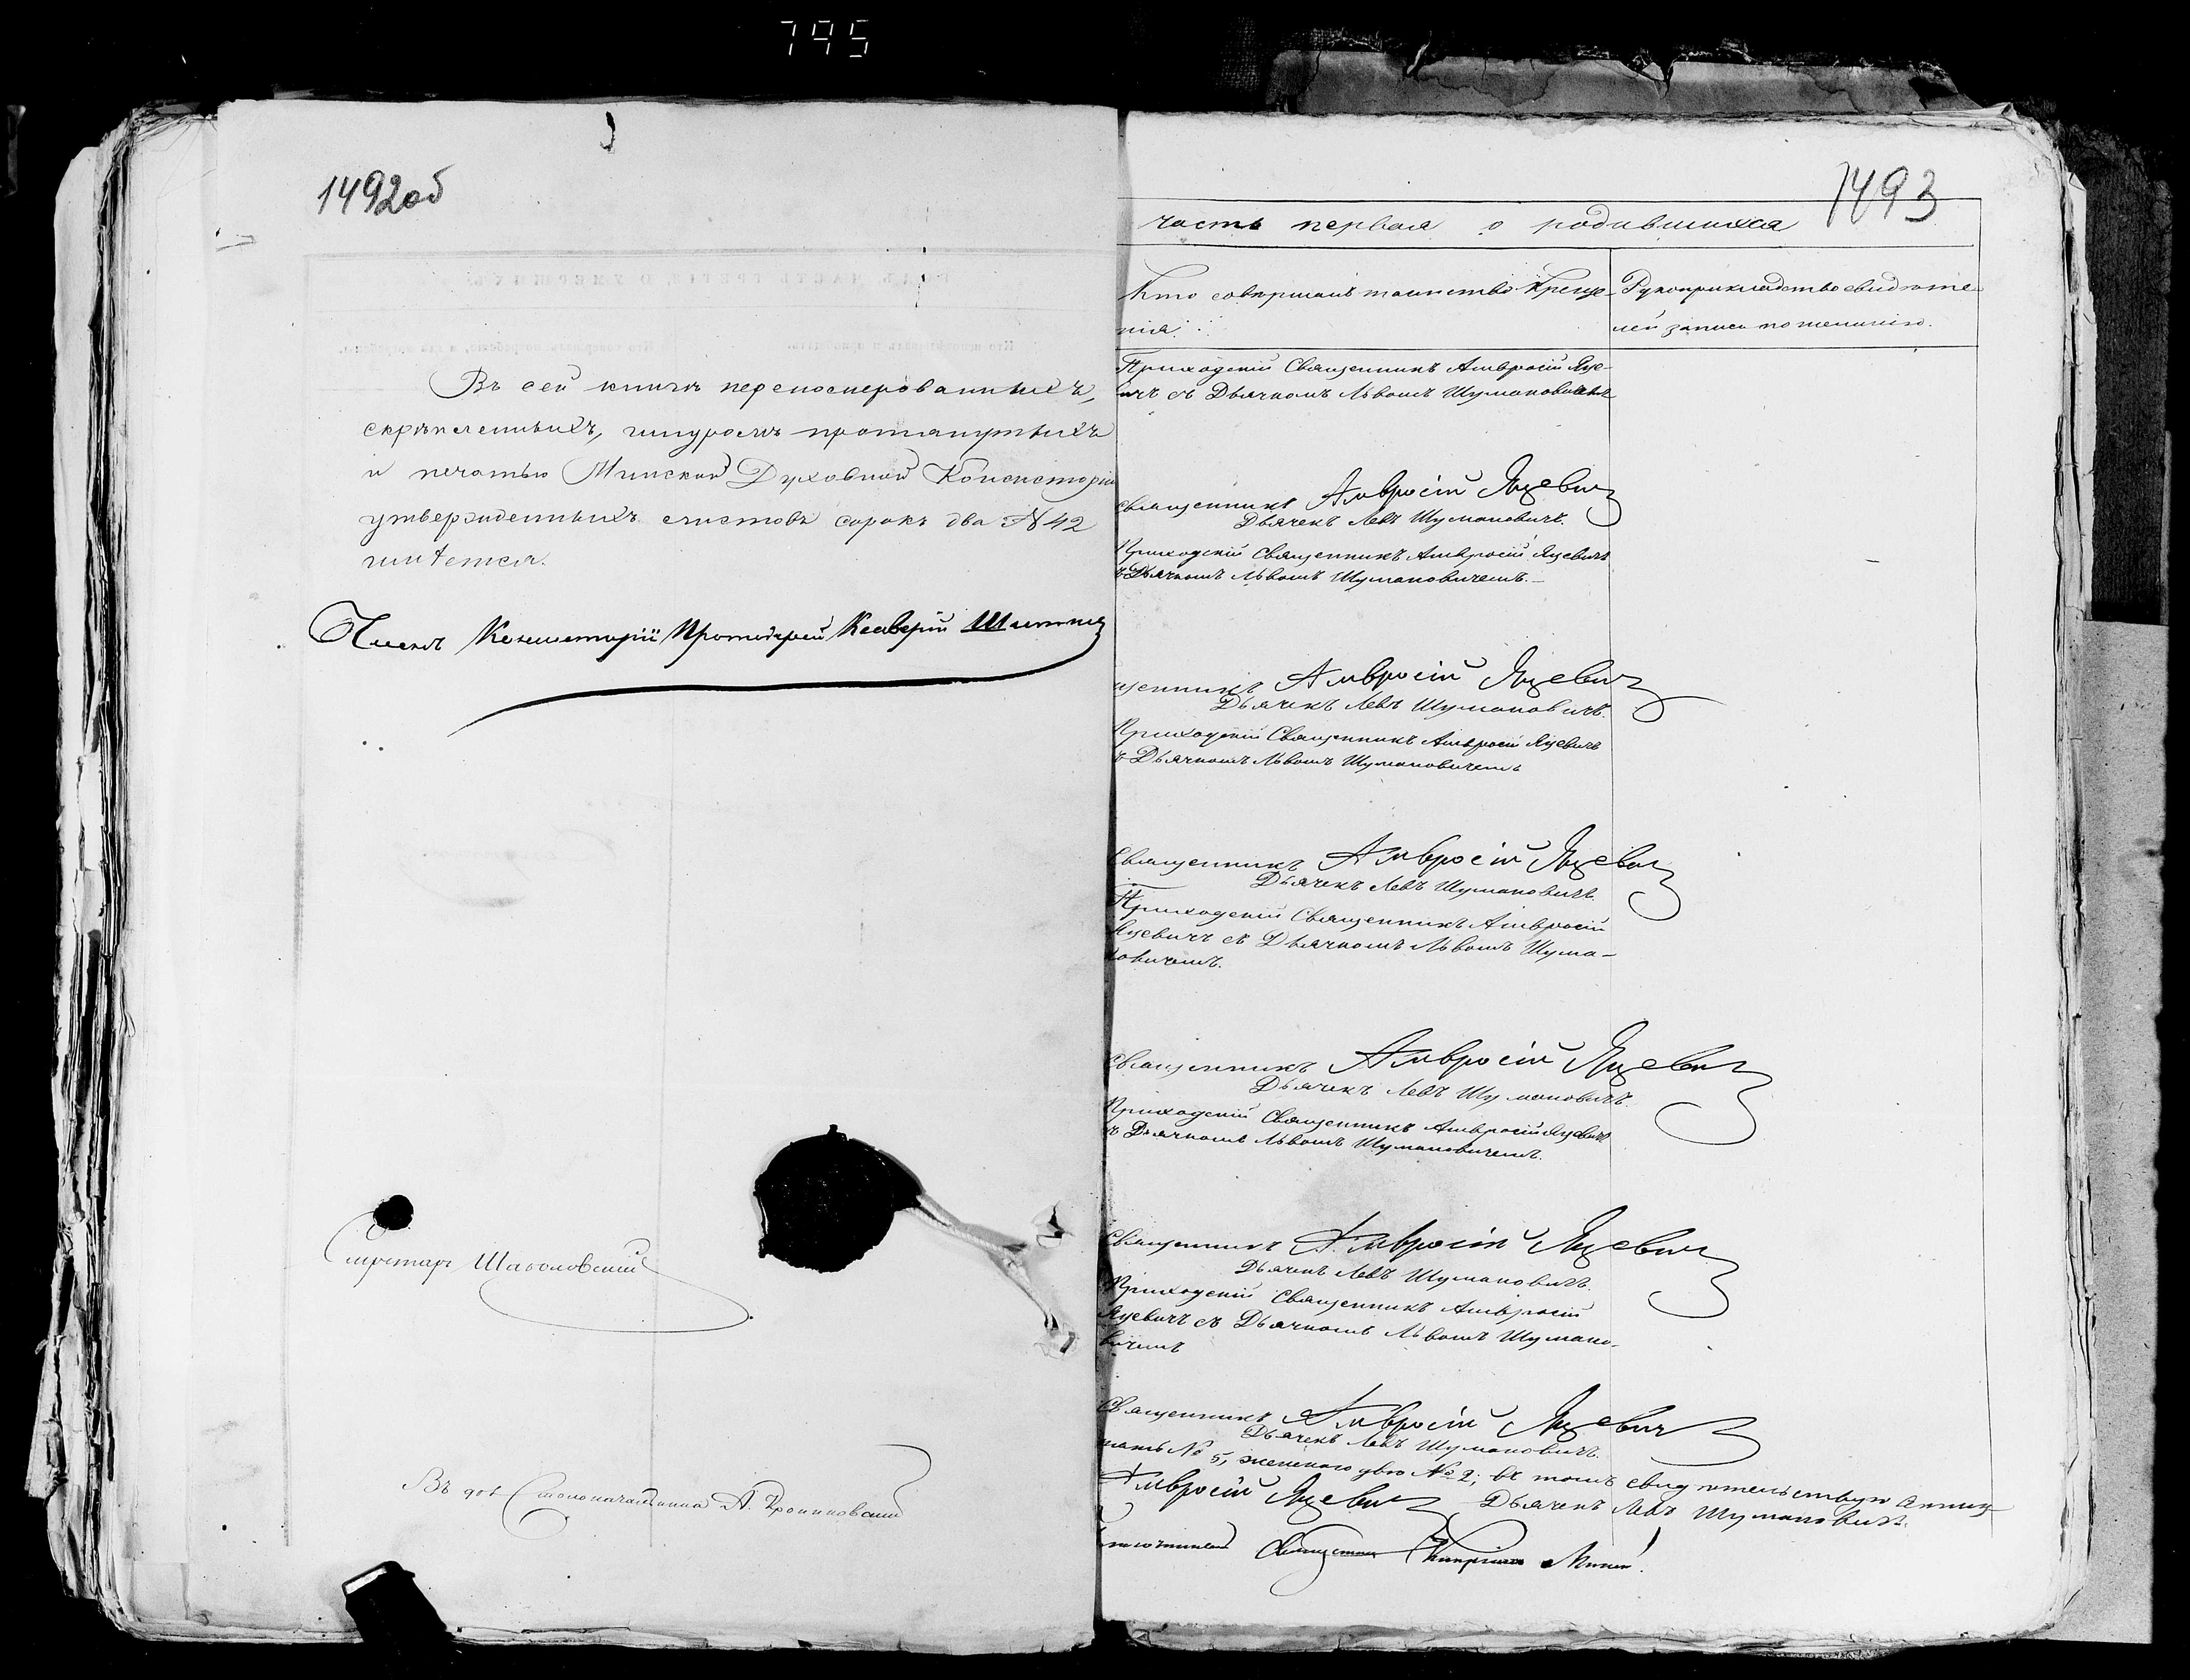 795
1492об
Въ сей книгѣ перенумерованныхъ,
скрѣпленныхъ, шнуромъ протянутыхъ
и печатью Минской Духовной Консисторіи
утвержденныхъ листовъ сорокъ два № 42
числится.
Членъ Консисторіи Протоіерей
Секретарь
Въ дол. Столоначальника А.
1493
часть первая о родившихся
Кто совершалъ таинство Креще-
нія.
Рукоприкладство свидѣте
лей записи по желанію.
Приходскій Священникъ Амвросій Яце-
вичъ съ Дьячкомъ Львомъ Шумановичемъ
Священникъ Амвросій Яцевичъ
Дьячекъ Левъ Шумановичъ.
Приходскій Священникъ Амвросій Яцевичъ
ъ Дьячкомъ Львомъ Шумановичемъ.–
щенникъ Амвросій Яцевичъ
Дьячекъ Левъ Шумановичъ.
Приходскій Священникъ Амвросій Яцевичъ
ъ Дьячкомъ Львомъ Шумановичемъ
Священникъ Амвросій Яцевичъ
Дьячекъ Левъ Шумановичъ.
Приходскій Священникъ Амвросій
Яцевичъ съ Дьячкомъ Львомъ Шума-
новичемъ.
Священникъ Амвросій Яцевичъ
Дьячекъ Левъ Шумановичъ.
Приходскій Священникъ Амвросій Яцевичъ
ъ Дьячкомъ Львомъ Шумановичемъ.
Священникъ Амвросій Яцевичъ
Дьячекъ Левъ Шумановичъ.
Приходскій Священникъ Амвросій
Яцевичъ съ Дьячкомъ Львомъ Шумано-
вичемъ
Священникъ Амвросій Яцевичъ
Дьячекъ Левъ Шумановичъ.
№ 5, женскаго № 2; въ томъ свидѣтельствую
Амвросій Яцевичъ Дьячекъ Левъ Шумановичъ.
Священникъ